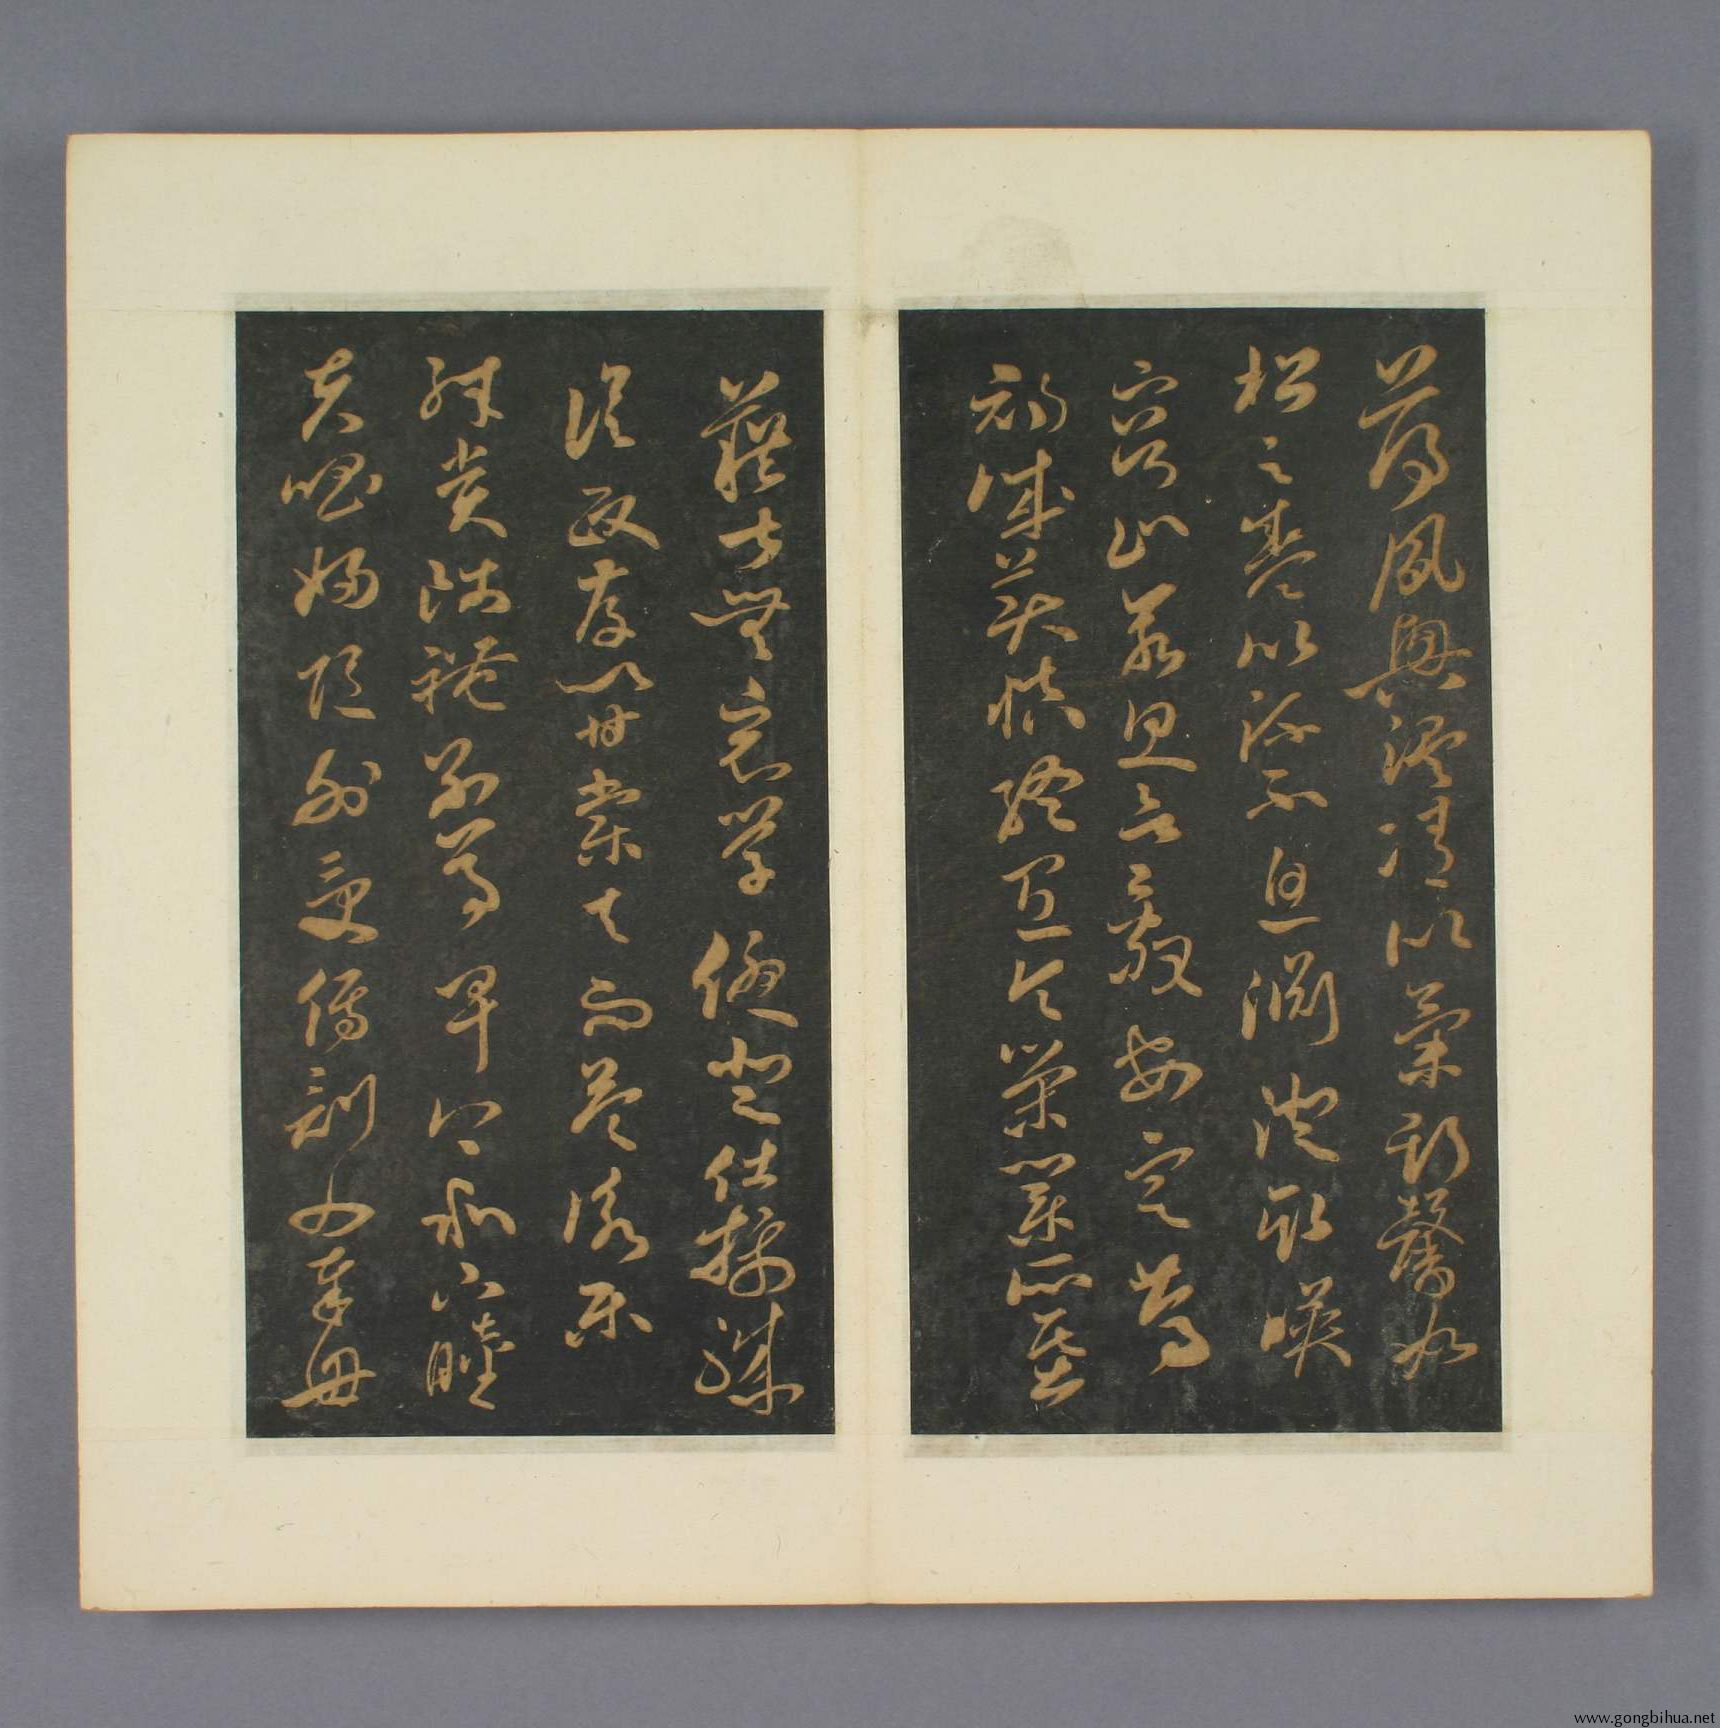 薄夙興溫凊似蘭斯馨如
松之盛川流不息淵澄取暎
容止若思言辭安定篤
初誠美慎終宜令榮業所基
藉甚無竟學優登仕攝職
從政存以甘棠去而益詠樂
殊貴賤禮別尊卑上和下睦
夫唱婦隨外受傅訓入奉母
www.gongbihua.net